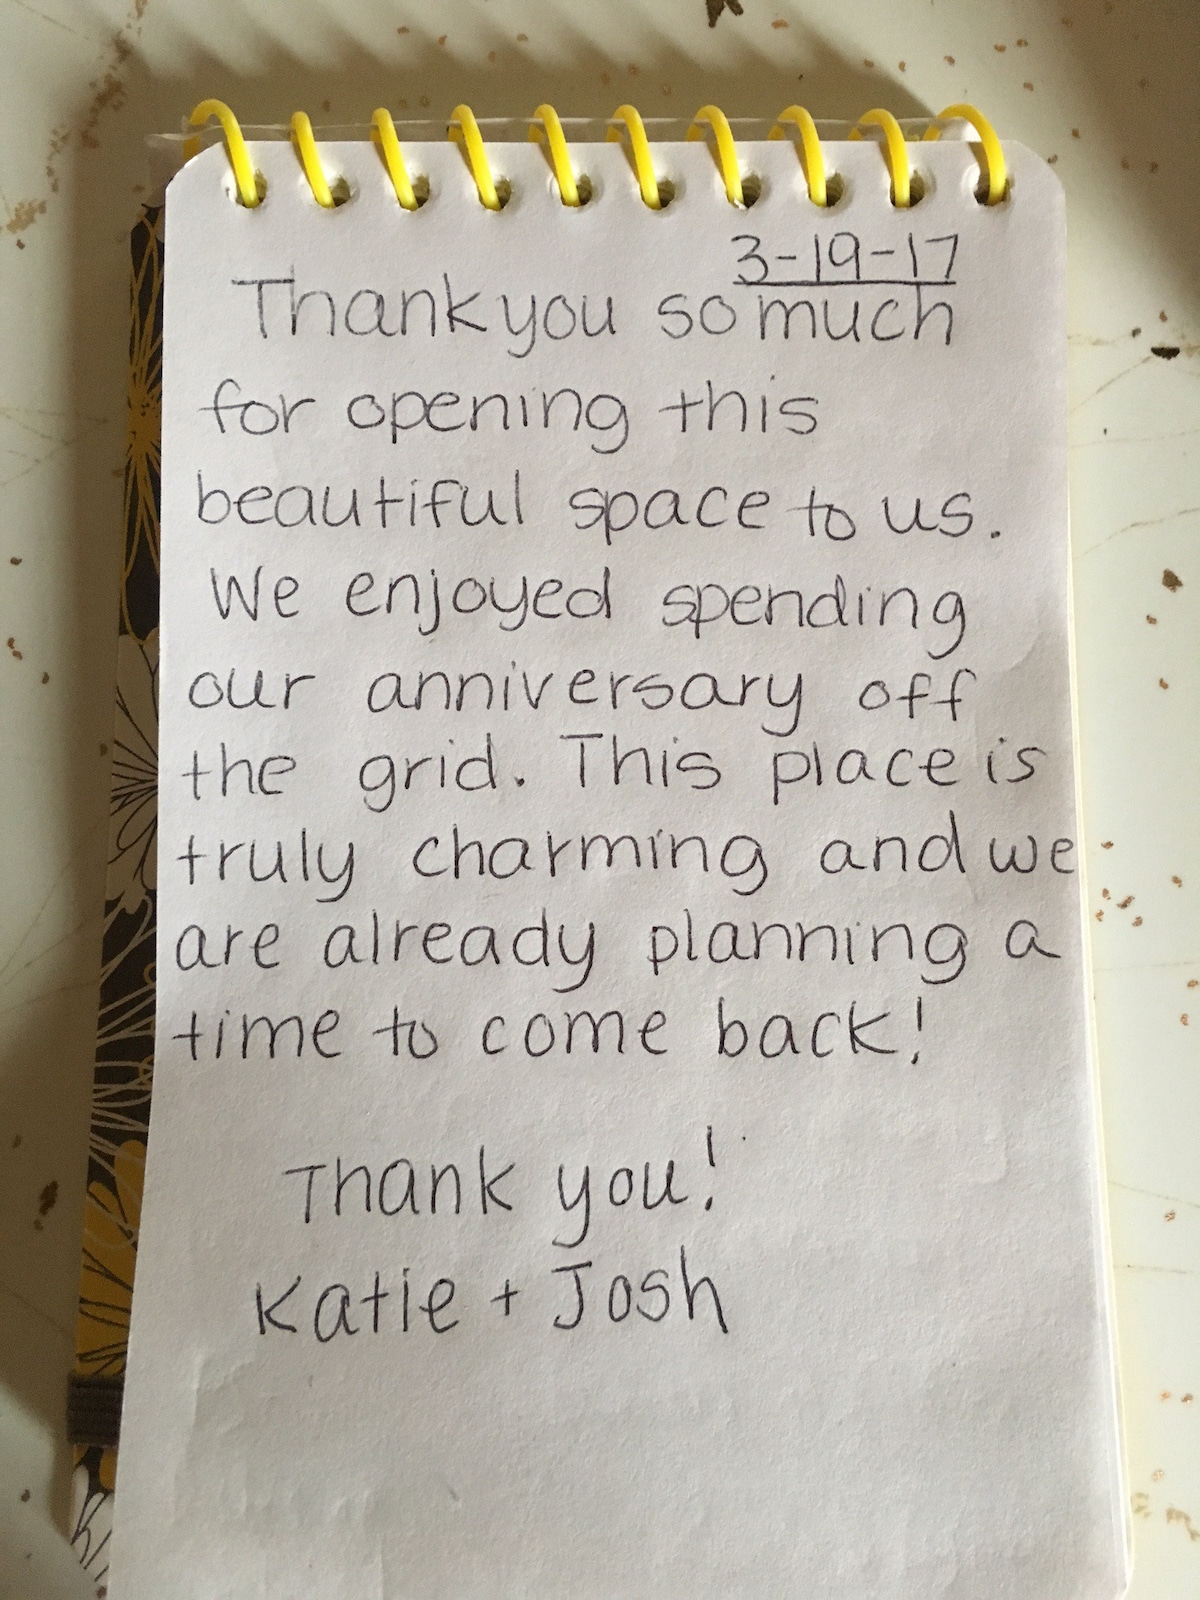 3-19-17
Thank you so much
for opening this
beautiful space to us.
We enjoyed spending
our anniversary off
the grid. This place is
truly charming and we
are already planning a
time to come back!
Thank you!
Katie + Josh